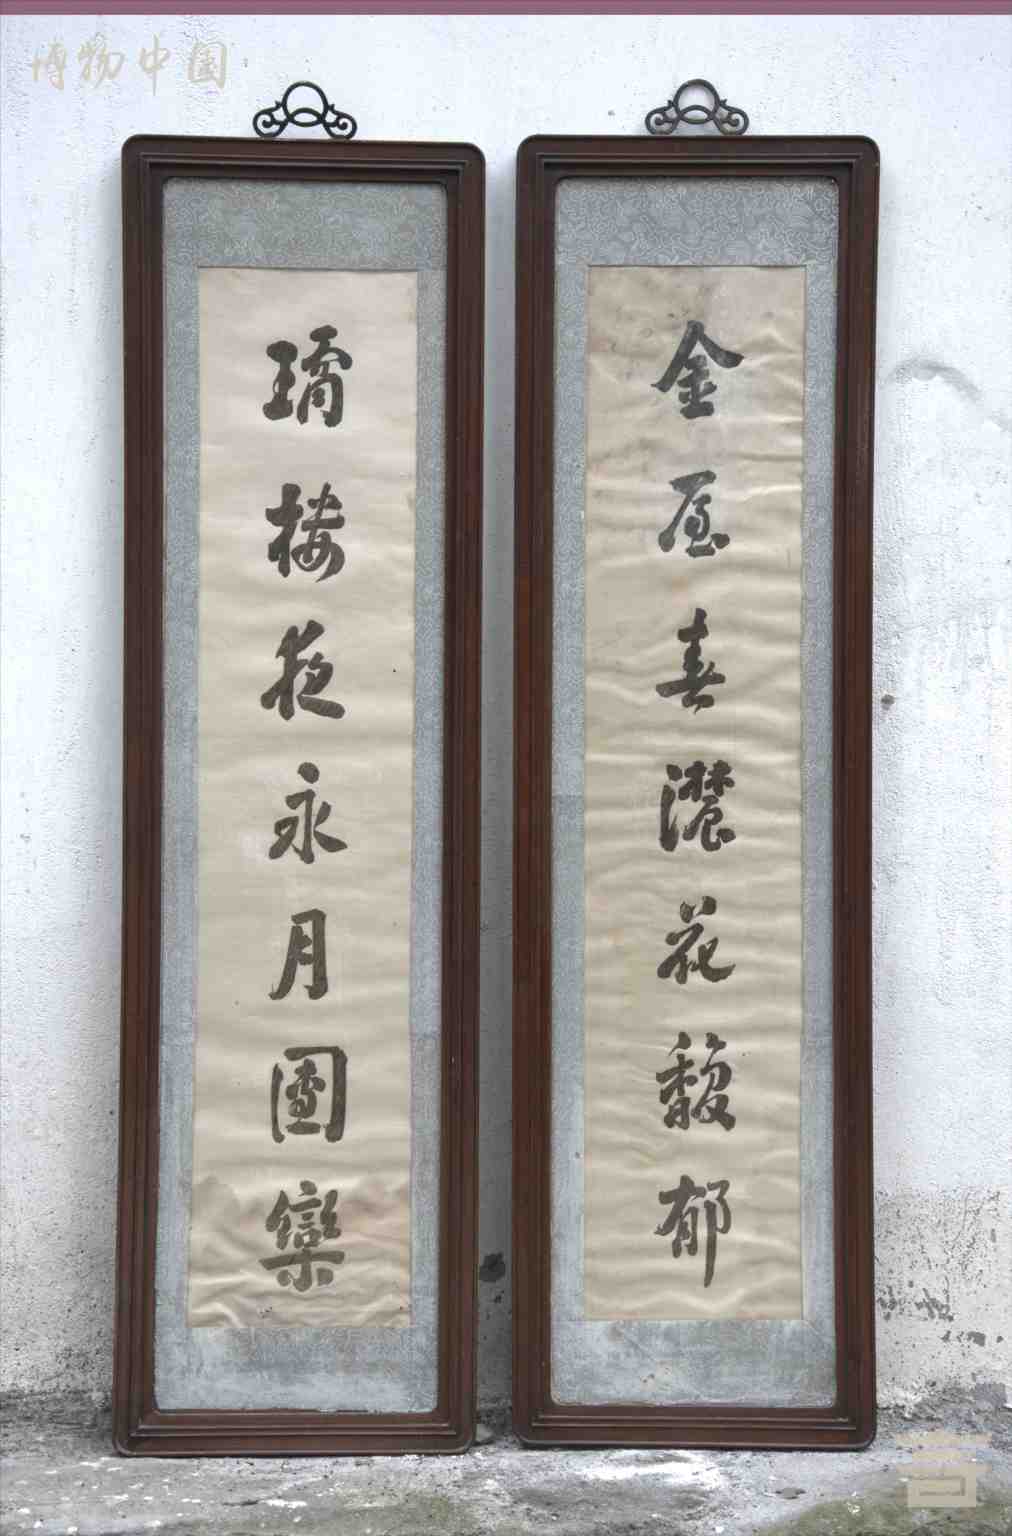 博物中国
金屋春濃花馥郁
璚樓夜永月團欒